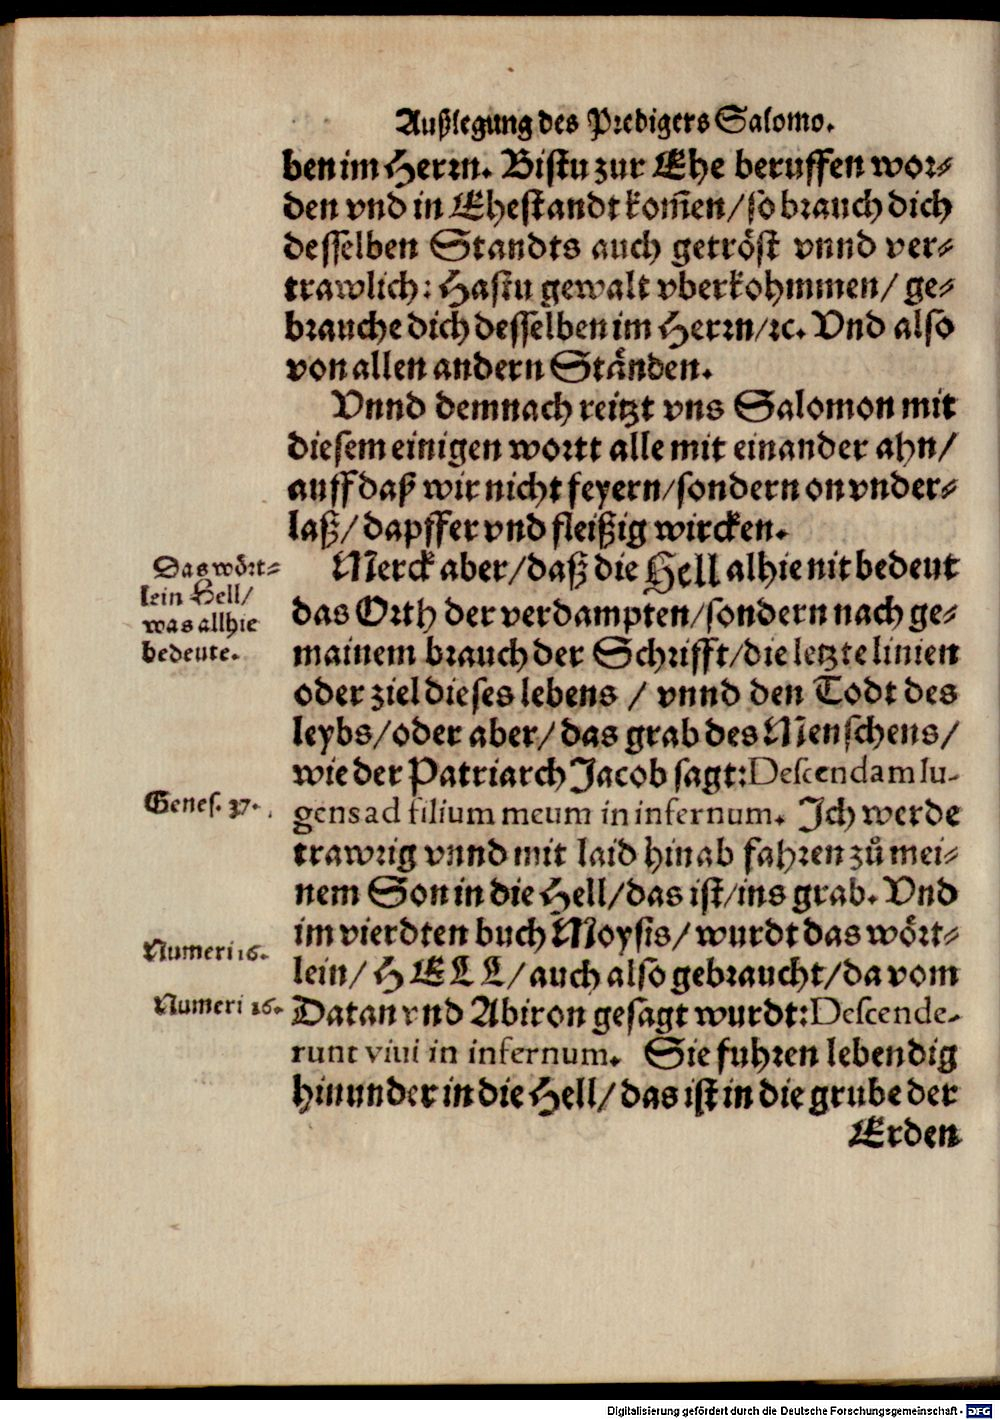 Außlegung des Predigers Salomo.
ben im Herrn. Bistu zur Ehe beruffen wor⸗
den vnd in Ehestandt kom̃en/so brauch dich
desselben Standts auch getröst vnnd ver⸗
trawlich: Hastu gewalt vberkohmmen/ ge⸗
brauche dich desselben im Herrn/ꝛc. Vnd also
von allen andern Ständen.
Vnnd demnach reitzt vns Salomon mit
diesem einigen wortt alle mit einander ahn/
auff daß wir nicht feyern/sondern on vnder⸗
laß/ dapffer vnd fleißig wircken.
Das wört⸗
lein Hell/
was allhie
bedeute.
Merck aber/daß die Hell alhie nit bedeut
das Orth der verdampten/sondern nach ge⸗
mainem brauch der Schrifft/die letzte linien
oder ziel dieses lebens / vnnd den Todt des
leybs/oder aber/ das grab des Menschens/
wie der Patriarch Jacob sagt: Descendam lu-
Genes. 37.
gens ad filium meum in infernum. Ich werde
trawrig vnnd mit laid hinab fahren zů mei⸗
nem Son in die Hell/das ist/ins grab. Vnd
im vierdten buch Moysis/ wurdt das wört⸗
Numeri 16.
lein/ HELL/auch also gebraucht/da vom
Numeri 26.
Datan vnd Abiron gesagt wurdt: Descende-
runt viui in infernum. Sie fuhren lebendig
hinunder in die Hell/ das ist in die grube der
Erden
Digitalisierung gefördert durch die Deutsche Forschungsgemeinschaft - DFG